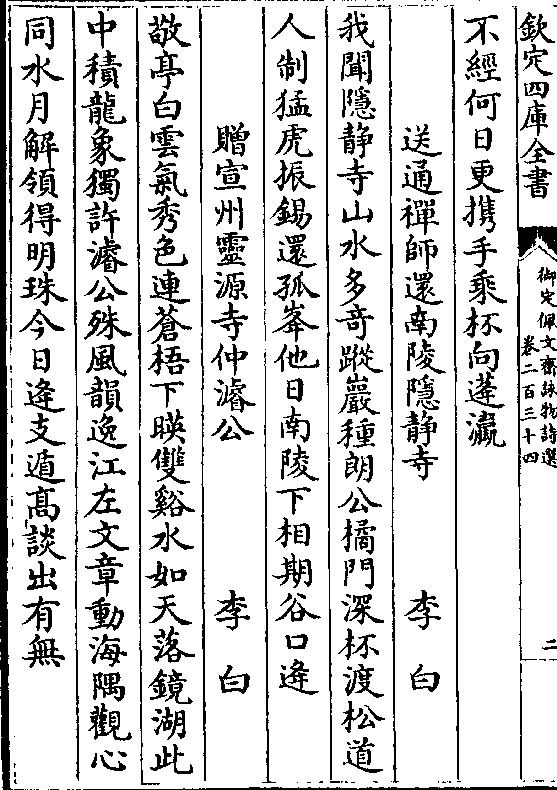 欽定四庫全書
御定佩文齋詠物詩選
卷二百三十四
二
不經何日更携手乘杯向蓬瀛
送通禪師還南陵隱静寺　李白
我聞隱静寺山水多竒蹤巖種朗公橘門深杯渡松道
人制猛虎振錫還孤峯他日南陵下相期谷口逢
贈宣州靈源寺仲濬公　李白
敬亭白雲氣秀色連蒼梧下暎雙谿水如天落鏡湖此
中積龍象獨許濬公殊風韻逸江左文章動海隅觀心
同水月解領得明珠今日逄支遁髙談出有無